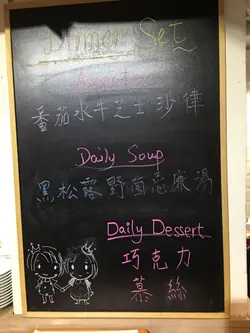 Dinner Set
番茄水牛芝士沙律
Daily Soup
黑松露野菌忌廉湯
Daily Dessert
巧克力
慕絲